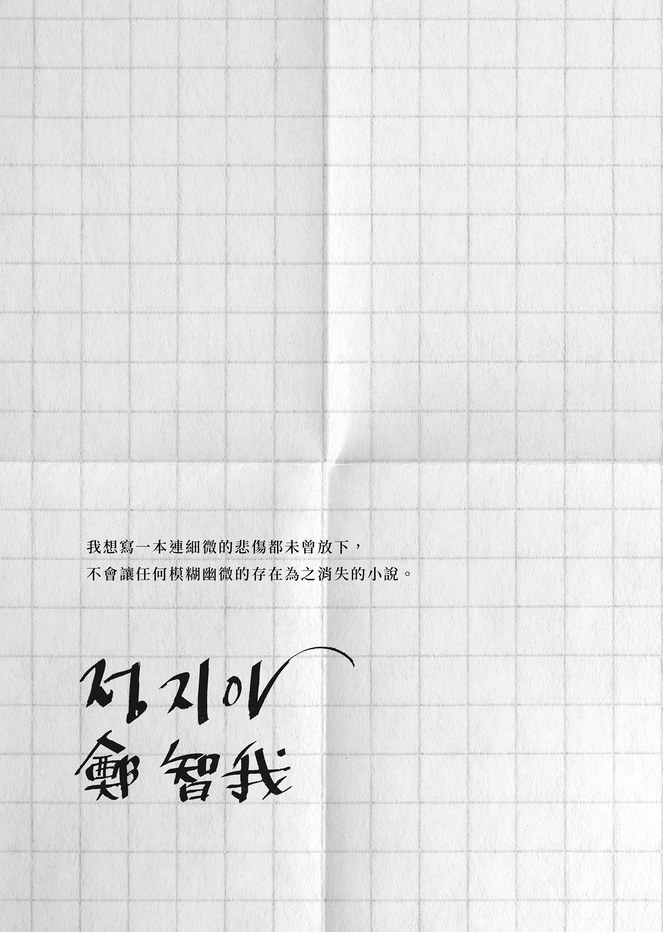 我想寫一本連細微的悲傷都未曾放下，
不會讓任何模糊幽微的存在為之消失的小說。
정지아
鄭智我